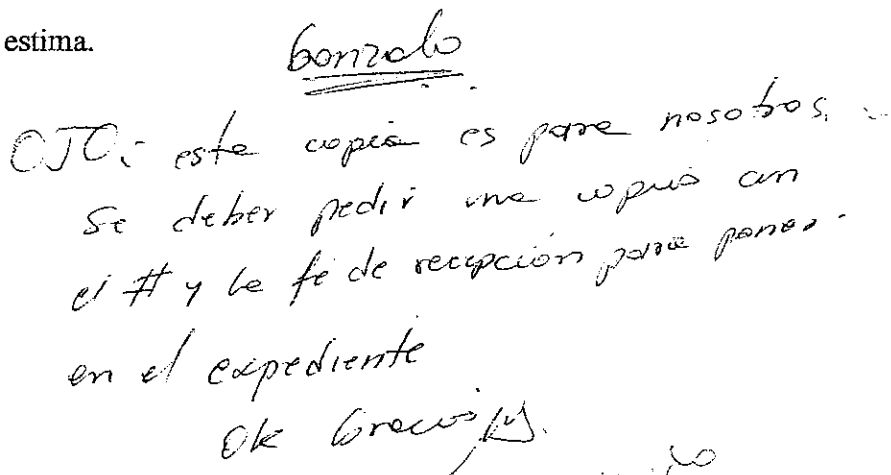 estima.
Gonzalo
OJO: esta copia es para nosotros.
Se deber pedir una copia con
el # y la fé de recepción para poner
en el expediente
Ok Gracias